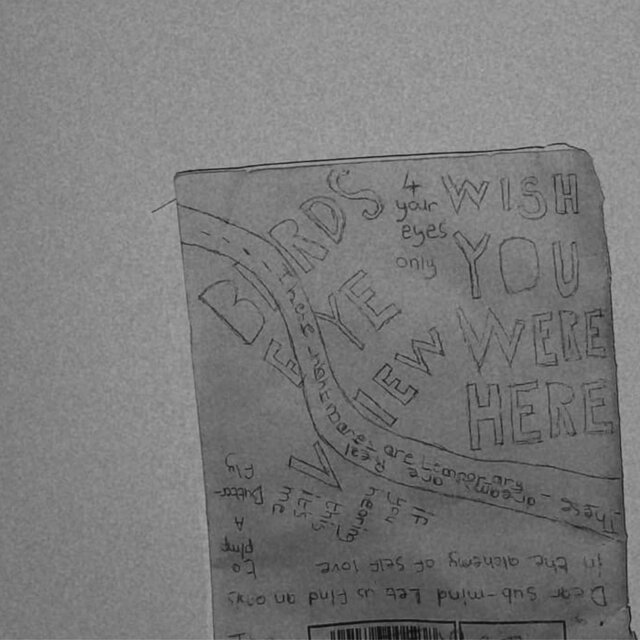 4
your
eyes
only
WISH
YOU
WERE
HERE
BIRDS
EYE
VIEW
These nightmares are temporary
These dreams are Real
If
you
hearing
this
it's
me
Dear sub-mind Let us find an oasis
in the alchemy of self love
To
Pimp
A
Butterfly